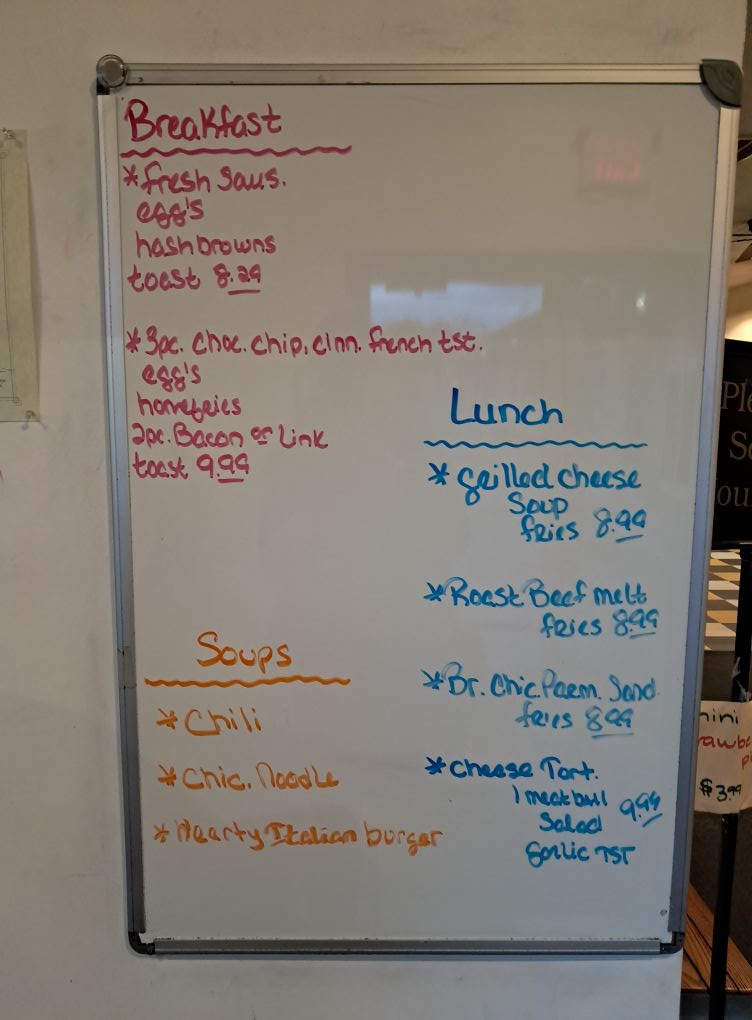 Breakfast
*fresh Saus.
egg's
hashbrowns
toast 8.29
*3pc. choc. chip, cinn. french tst.
egg's
homefries
2pc. Bacon or Link
toast 9.99
Lunch
*grilled cheese
Soup
fries 8.99
*Roast Beef melt
fries 8.99
*Br. Chic. Parm. Sand.
fries 8.99
*cheese Tort.
1 meatball
Salad 9.99
garlic TST
Soups
*Chili
*Chic. Noodle
*Hearty Italian burger
$3.99